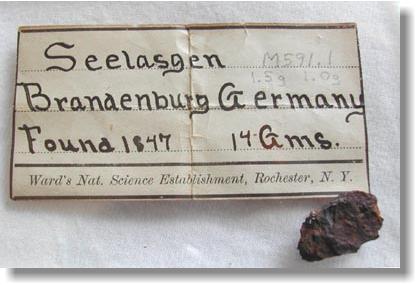 Seelasgen M591.1
1.5g 1.0g
Brandenburg Germany
Found 1847 14 Gms.
Ward's Nat. Science Establishment, Rochester, N. Y.